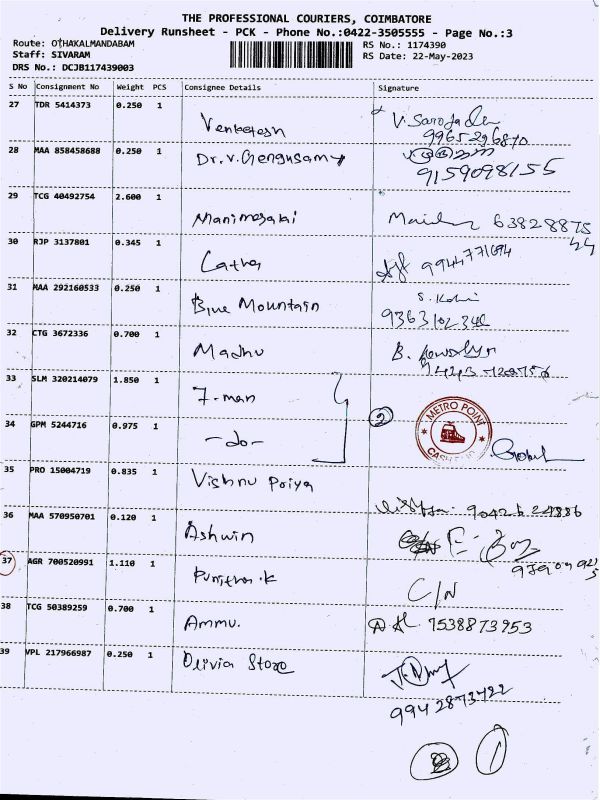 THE PROFESSIONAL COURIERS, COIMBATORE
Delivery Runsheet - PCK - Phone No.:0422-3505555 - Page No.:3
Route: OTHAKALMANDABAM
Staff: SIVARAM
DRS No.: DCJB117439003
RS No.: 1174390
RS Date: 22-May-2023
S No Consignment No Weight PCS Consignee Details Signature
27 TDR 5414373 0.250 1 Venketesh V. Saroja
9965296870
28 MAA 858458688 0.250 1 Dr.V.Chengusamy
9159098155
29 TCG 40492754 2.600 1 Manimegalai 63828875
44
30 RJP 3137801 0.345 1 9944771694
31 MAA 292160533 0.250 1 Blue Mountain S.
32 CTG 3672336 0.700 1 Madhu B.
33 SLM 320214079 1.850 1 7-man
34 GPM 5244716 0.975 1 -do- 2 METRO POINT
35 PRO 15004719 0.835 1 Vishnu Priya
36 MAA 570950701 0.120 1 Ashwin
37 AGR 700520991 1.110 1 C/N
38 TCG 50389259 0.700 1 Ammu. 7538873953
39 VPL 217966987 0.250 1 Olivia Store
9942873722
1